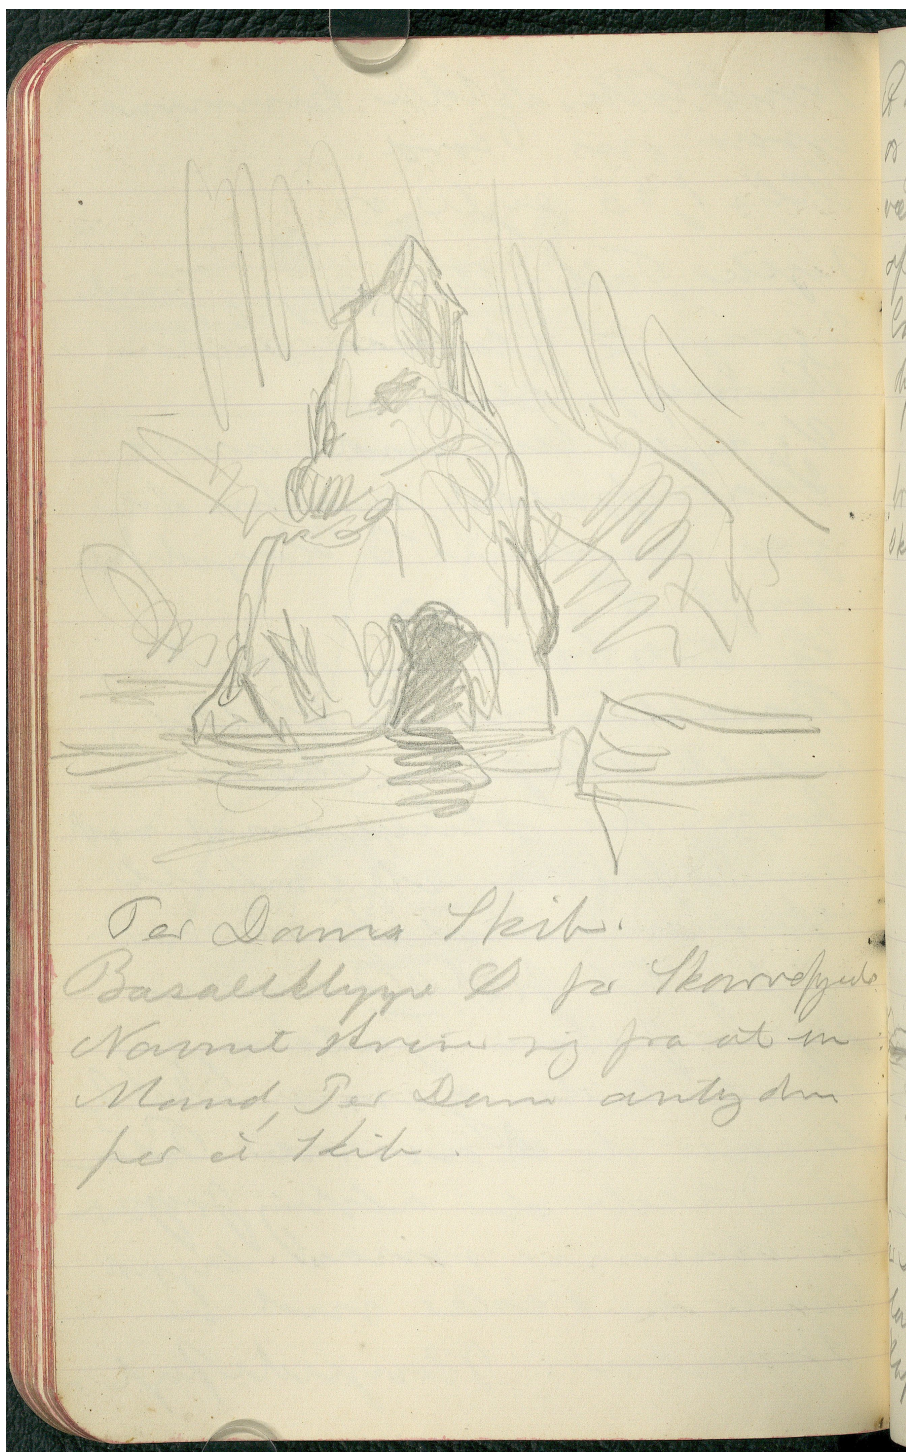 Per Dams Skib.
Basaltklippe Ø for Skorrefjeld
Navnet skriver sig fra at en
Mand, Per Dam antog den
for et Skib.